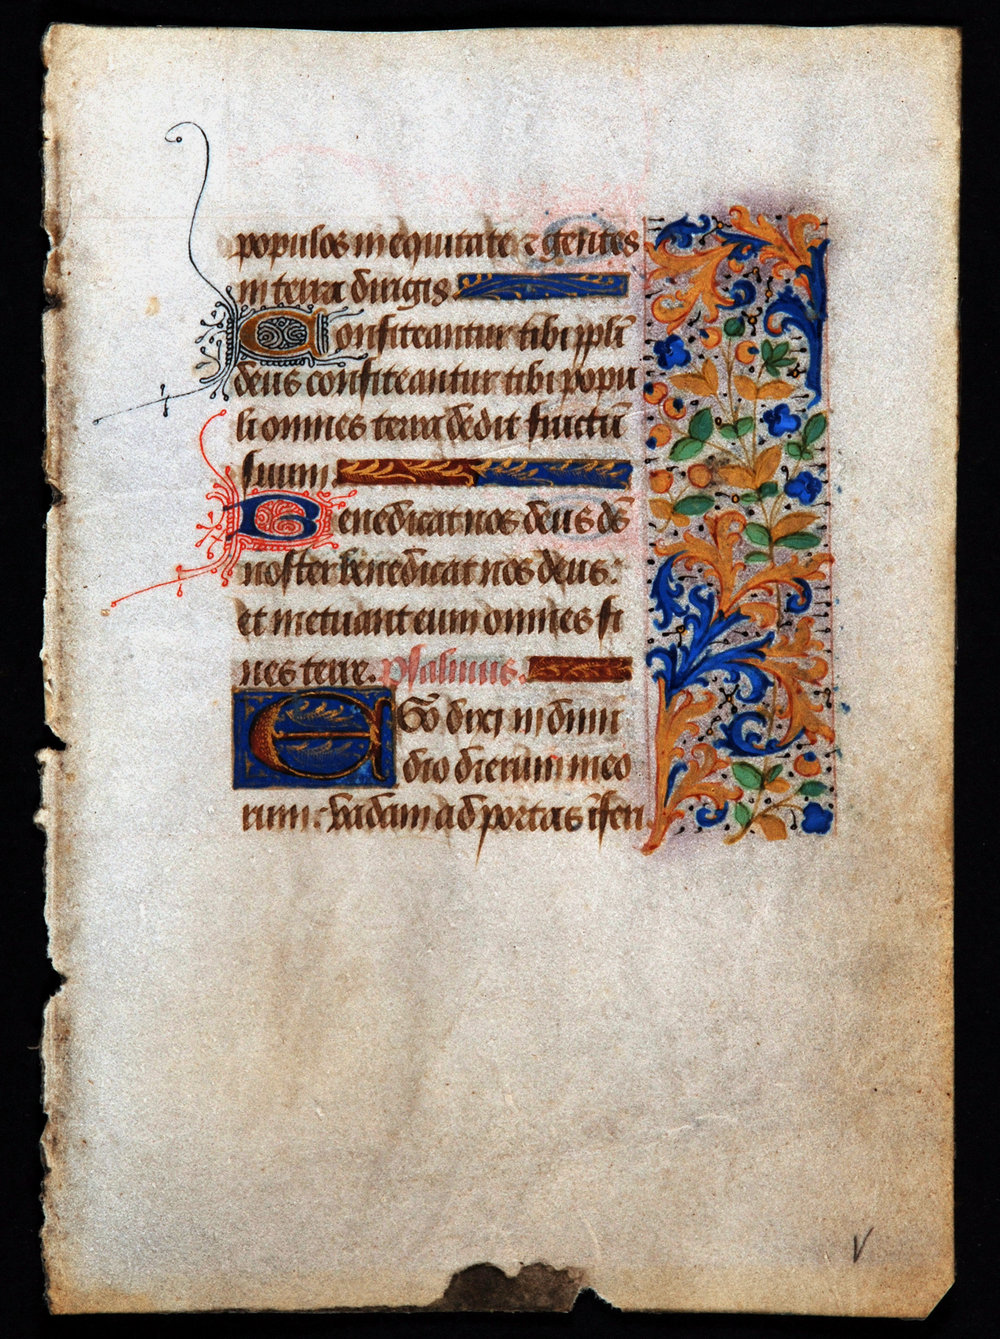 populos in equitate ⁊ gentes
in terra dirigis.
Confiteantur tibi ppl̄i
deus confiteantur tibi popu
li omnes terra dedit fructū
suum
Benedicat nos deus de᷒
noster benedicat nos deus:
et metuant eum omnes fi
nes terre. psalmus.
Ego dixi in dimi
dio dierum meo
rum: vadam ad portas īferi
V